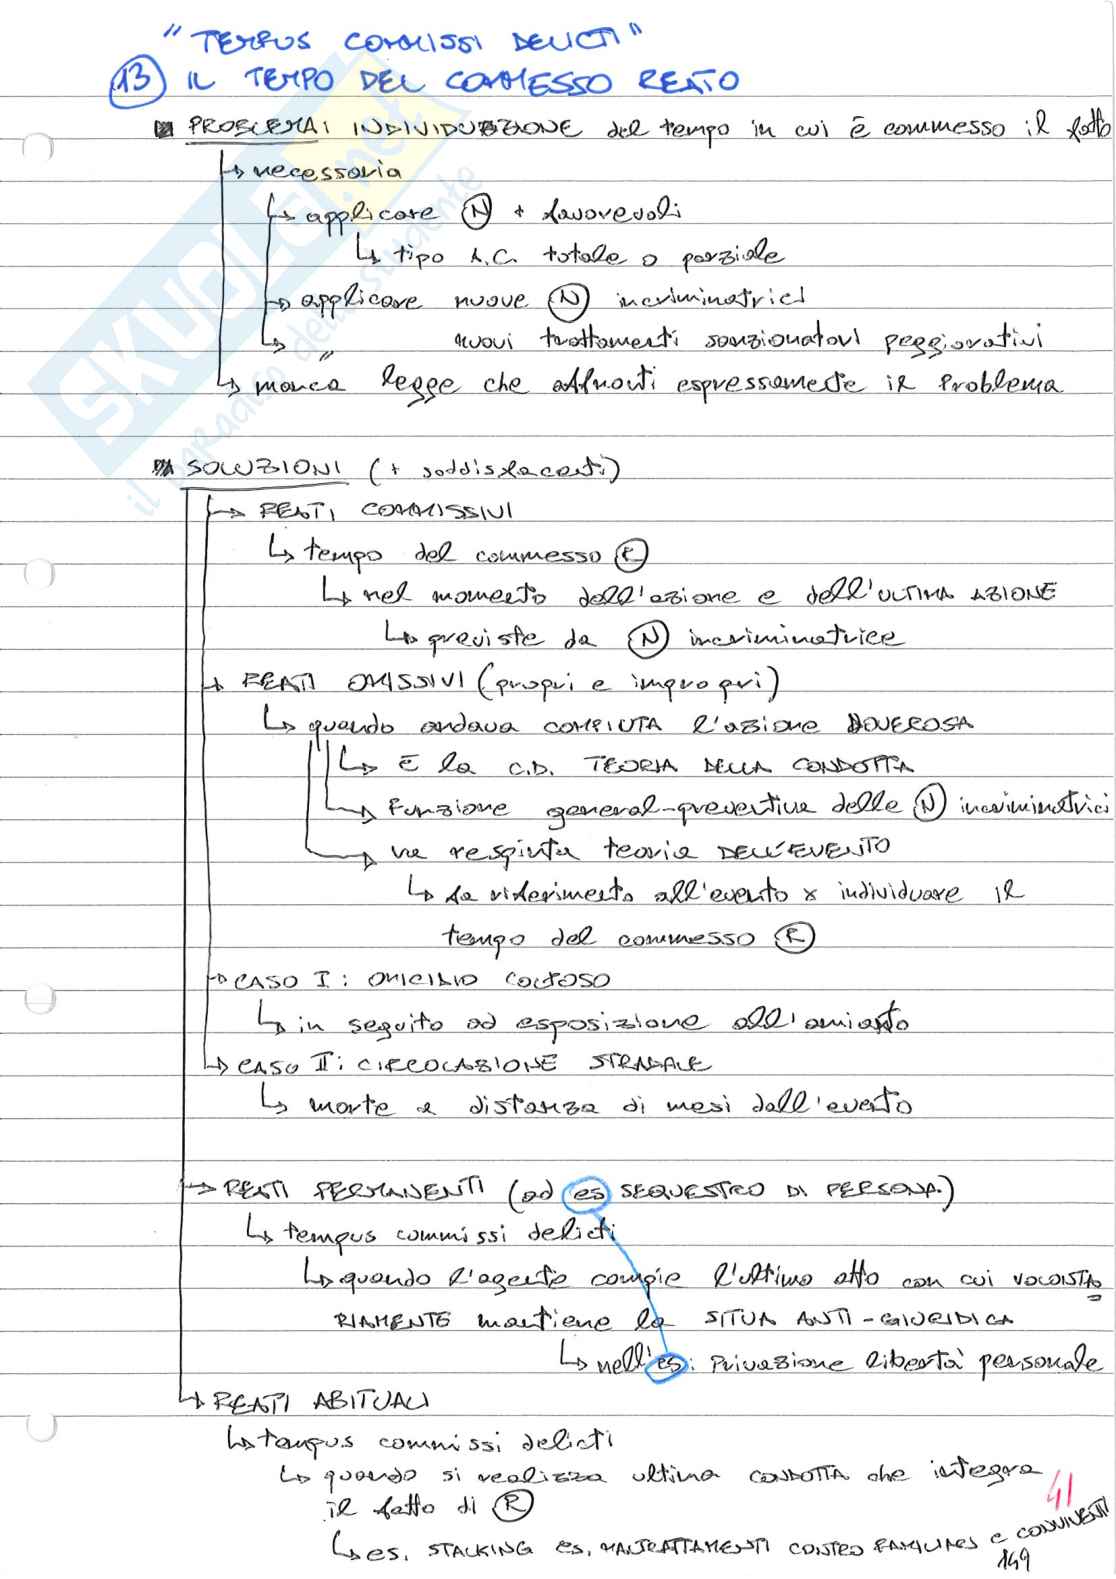 "TEMPUS COMMISSI DELICTI"
13 IL TEMPO DEL COMMESSO REATO
PROBLEMA: INDIVIDUAZIONE del tempo in cui è commesso il fatto
↳ necessaria
↳ applicare N + favorevoli
↳ tipo A.C. totale o parziale
↳ applicare nuove N incriminatrici
↳ " nuovi trattamenti sanzionatori peggiorativi
↳ manca legge che affronti espressamente il problema
SOLUZIONI (+ soddisfacenti)
↳ REATI COMMISSIVI
↳ tempo del commesso R
↳ nel momento dell'azione e dell'ULTIMA AZIONE
↳ previste da N incriminatrice
↳ REATI OMISSIVI (propri e impropri)
↳ quando andava COMPIUTA l'azione DOVEROSA
↳ È la C.D. TEORIA DELLA CONDOTTA
↳ Funzione general-preventiva delle N incriminatrici
↳ va respinta teoria DELL'EVENTO
↳ fa riferimento all'evento x individuare il
tempo del commesso R
↳ CASO I: OMICIDIO COLPOSO
↳ in seguito ad esposizione all'amianto
↳ CASO II: CIRCOLAZIONE STRADALE
↳ morte a distanza di mesi dall'evento
↳ REATI PERMANENTI (ad es SEQUESTRO DI PERSONA)
↳ tempus commissi delicti
↳ quando l'agente compie l'ultimo atto con cui VOLONTA
RIAMENTE mantiene la SITUA ANTI-GIURIDICA
↳ nell'es: Privazione libertà personale
↳ REATI ABITUALI
↳ tempus commissi delicti
↳ quando si realizza ultima CONDOTTA che integra
il fatto di R
↳ es. STALKING es. MALTRATTAMENTI CONTRO FAMILIARI e CONVIVENTI
41
149
SKUOLA.net
il paradiso dello studente